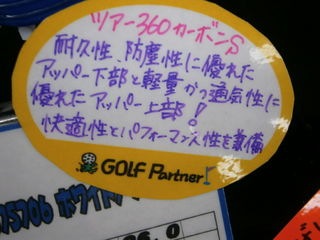 ツアー360カーボンS
耐久性、防塵性に優れた
アッパー下部と軽量かつ通気性に
優れたアッパー上部!
快適性とパフォーマンス性を兼備
GOLF Partner
75706 ホワイト